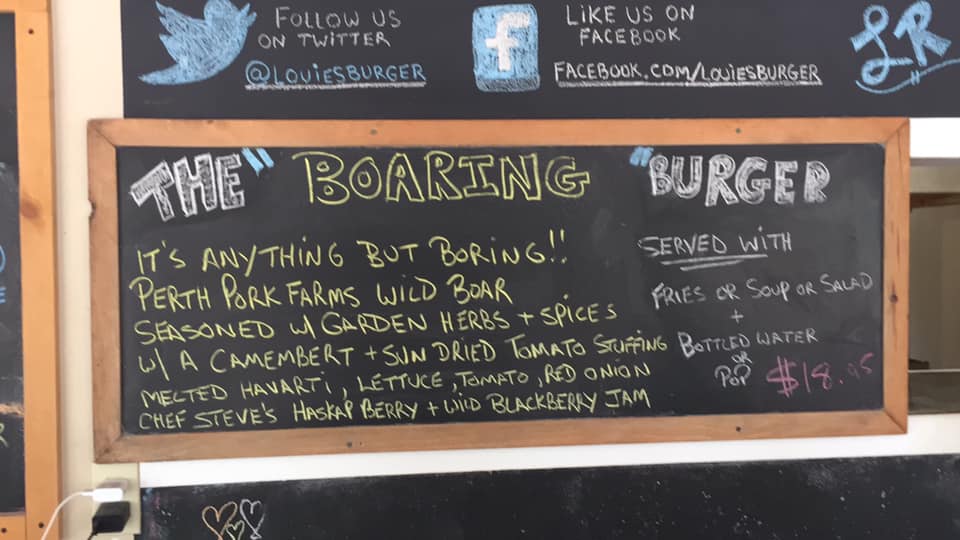 FOLLOW US
ON TWITTER
@LOUIESBURGER
f
LIKE US ON
FACEBOOK
FACEBOOK.COM/LOUIESBURGER
LR
THE "BOARING" BURGER
IT'S ANYTHING BUT BORING!!
PERTH PORK FARMS WILD BOAR
SEASONED W/ GARDEN HERBS + SPICES
W/ A CAMEMBERT + SUN DRIED TOMATO STUFFING
MELTED HAVARTI, LETTUCE, TOMATO, RED ONION
CHEF STEVE'S HASKAP BERRY + WILD BLACKBERRY JAM
SERVED WITH
FRIES OR SOUP OR SALAD
+
BOTTLED WATER
OR
POP
$18.95